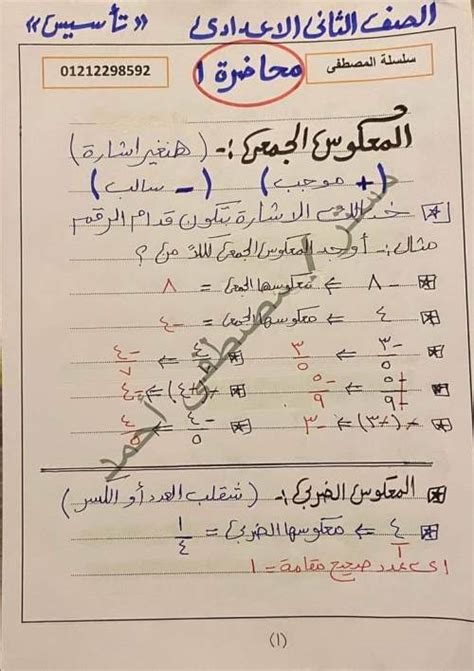 الصف الثانى الاعدادى «تأسيس»
سلسلة المصطفى
محاضرة ١
01212298592
المعكوس الجمعى :- (هنغير اشارة)
(+ موجب) (- سالب)
خد بالك الاشارة بتكون قدام الرقم
مثال :- أوجد المعكوس الجمعى لكلاً من ؟
-٨ ⇐ معكوسها الجمعى = ٨
٤ ⇐ معكوسها الجمعى = -٤
-٣/٥ ⇐ ٣/٥
٤/٧ ⇐ -٤/٧
٥/٩ ⇐ -٥/٩
-(-٣) ⇐ -٣
-٤/٥ ⇐ ٤/٥
مستر / مصطفى أحمد
المعكوس الضربى :- (شقلب العدد أو الكسر)
٤/١ ⇐ معكوسها الضربى = ١/٤
اى عدد صحيح مقامة = ١
(١)